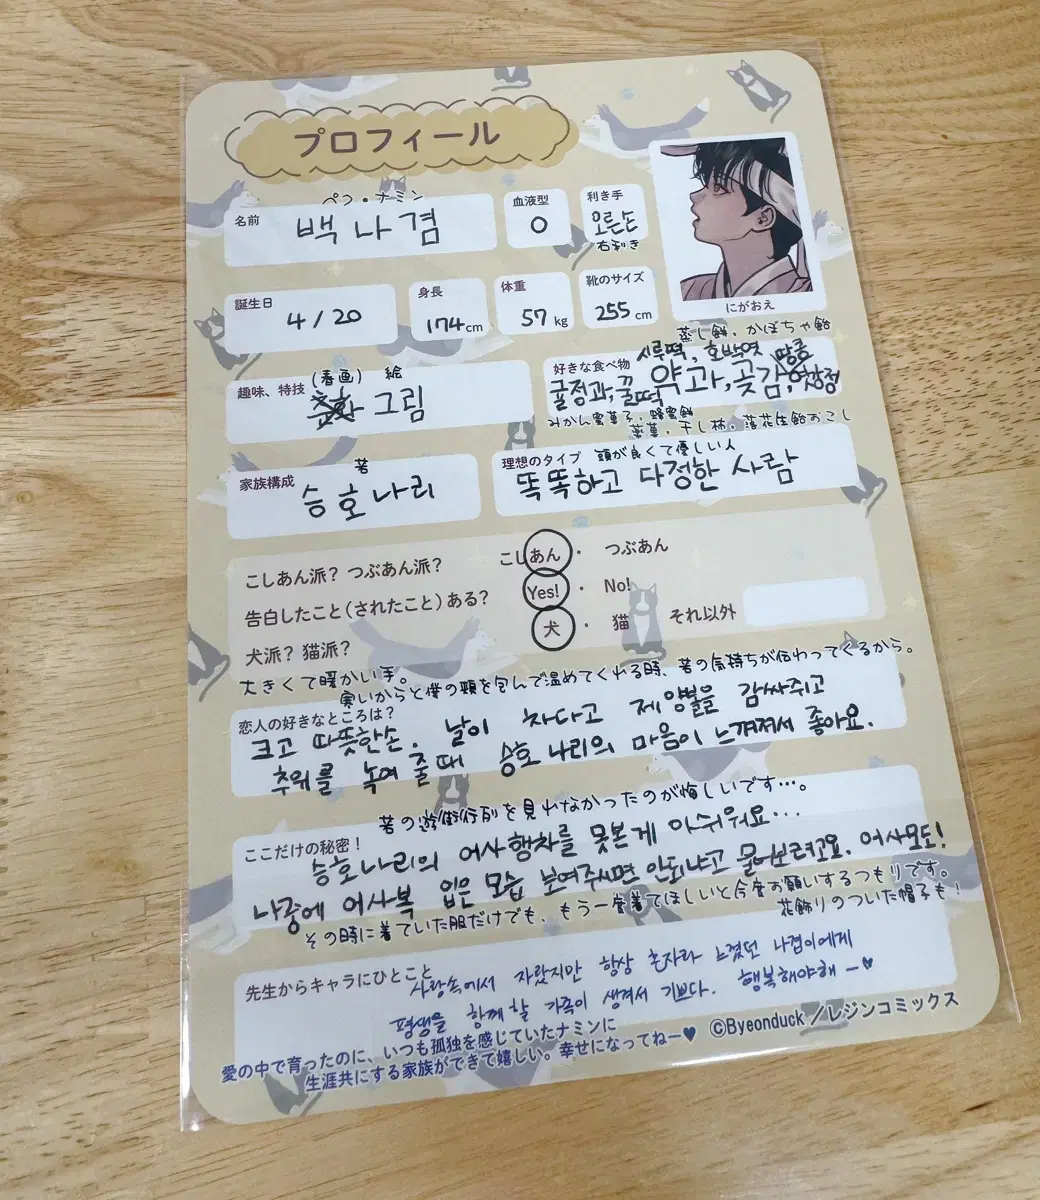 プロフィール
ペク・ナミン
名前
백 나겸
血液型
O
利き手
오른손
右利き
にがおえ
誕生日
4/20
身長
174cm
体重
57kg
靴のサイズ
255cm
趣味、特技
(春画) 絵
춘화 그림
蒸し餅、かぼちゃ飴
好きな食べ物
시루떡, 호박엿, 땅콩
귤정과, 꿀떡 약과, 곶감, 엿강정
みかん蜜菓子、蜂蜜餅
薬菓、干し柿、落花生飴おこし
家族構成
若
승호 나리
理想のタイプ
頭が良くて優しい人
똑똑하고 다정한 사람
こしあん派? つぶあん派?
こしあん ・ つぶあん
告白したこと(されたこと)ある?
Yes! ・ No!
犬派? 猫派?
犬 ・ 猫 それ以外
大きくて暖かい手。
寒いからと僕の頬を包んで温めてくれる時、若の気持ちが伝わってくるから。
恋人の好きなところは?
크고 따뜻한손. 날이 차다고 제 양볼을 감싸쥐고
추위를 녹여 줄때 승호 나리의 마음이 느껴져서 좋아요.
若の遊街行列を見れなかったのが悔しいです…。
ここだけの秘密!
승호 나리의 어사행차를 못본게 아쉬워요...
나중에 어사복 입은 모습 보여주시면 안되냐고 물어보려고요. 어사모도!
その時に着ていた服だけでも、もう一度着てほしいと今度お願いするつもりです。
花飾りのついた帽子も!
先生からキャラにひとこと
사랑속에서 자랐지만 항상 혼자라 느꼈던 나겸이에게
평생을 함께 할 가족이 생겨서 기쁘다. 행복해야해ー♥
愛の中で育ったのに、いつも孤独を感じていたナミンに
生涯共にする家族ができて嬉しい。幸せになってねー♥
©Byeonduck／レジンコミックス